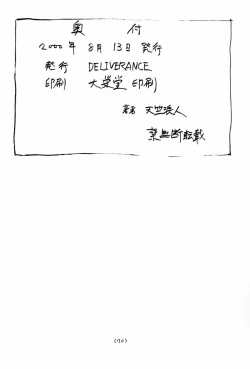 奥 付
2000年 8月 13日 発行
発行 DELIVERANCE
印刷 大栄堂印刷
著者 天竺浪人
禁無断転載
(70)